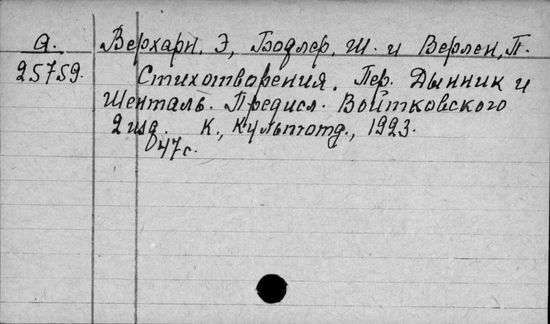 А.
25759.
Верхарн, Э, Бодлер, Ш. и Верлен, П.
Стихотварения. Пер. Дынник и
Шенталь. Предисл. Войтковского
2 изд. К., Культотд., 1923.
47с.